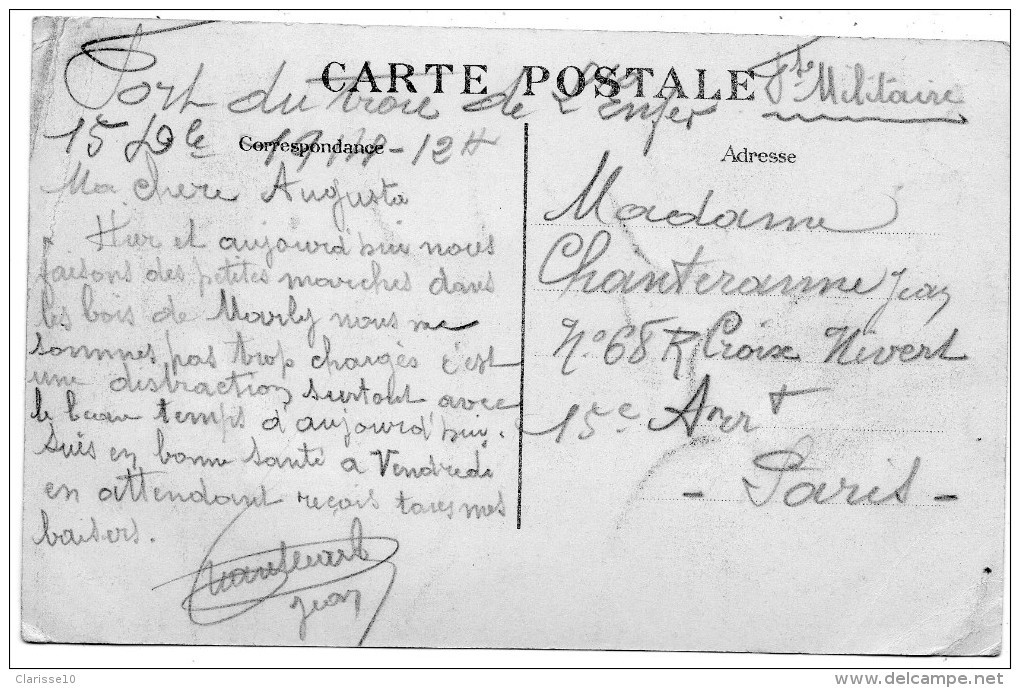 CARTE POSTALE
Fort du trou de l'Enfer
Fse Militaire
15 Dbe 1914 - 12H
Correspondance
Ma chere Augusta
Hier et aujourd'hui nous
faisons des petites marches dans
les bois de Marly nous ne
sommes pas trop chargés c'est
une distraction surtout avec
le beau temps d'aujourd'hui.
Suis en bonne santé a Vendredi
en attendant reçois tous mes
baisers.
Jean
Adresse
Madame
Chanteranne Jean
N° 68 R Croix Nivert
15e Arrt
- Paris -
Clarisse10
www.delcampe.net